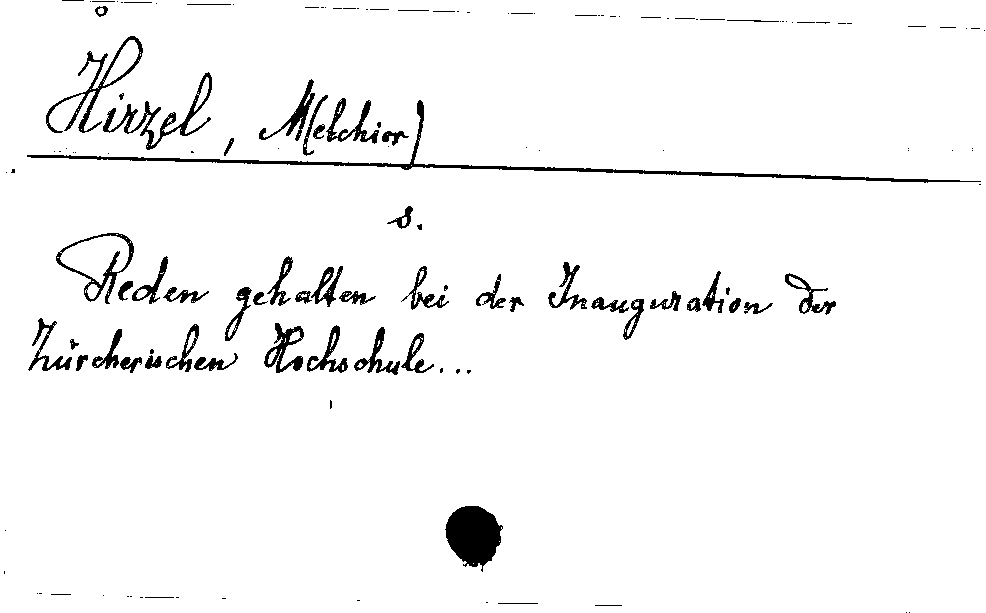 Hirzel, M(elchior)
s.
Reden gehalten bei der Inauguration der
Zürcherischen Hochschule...